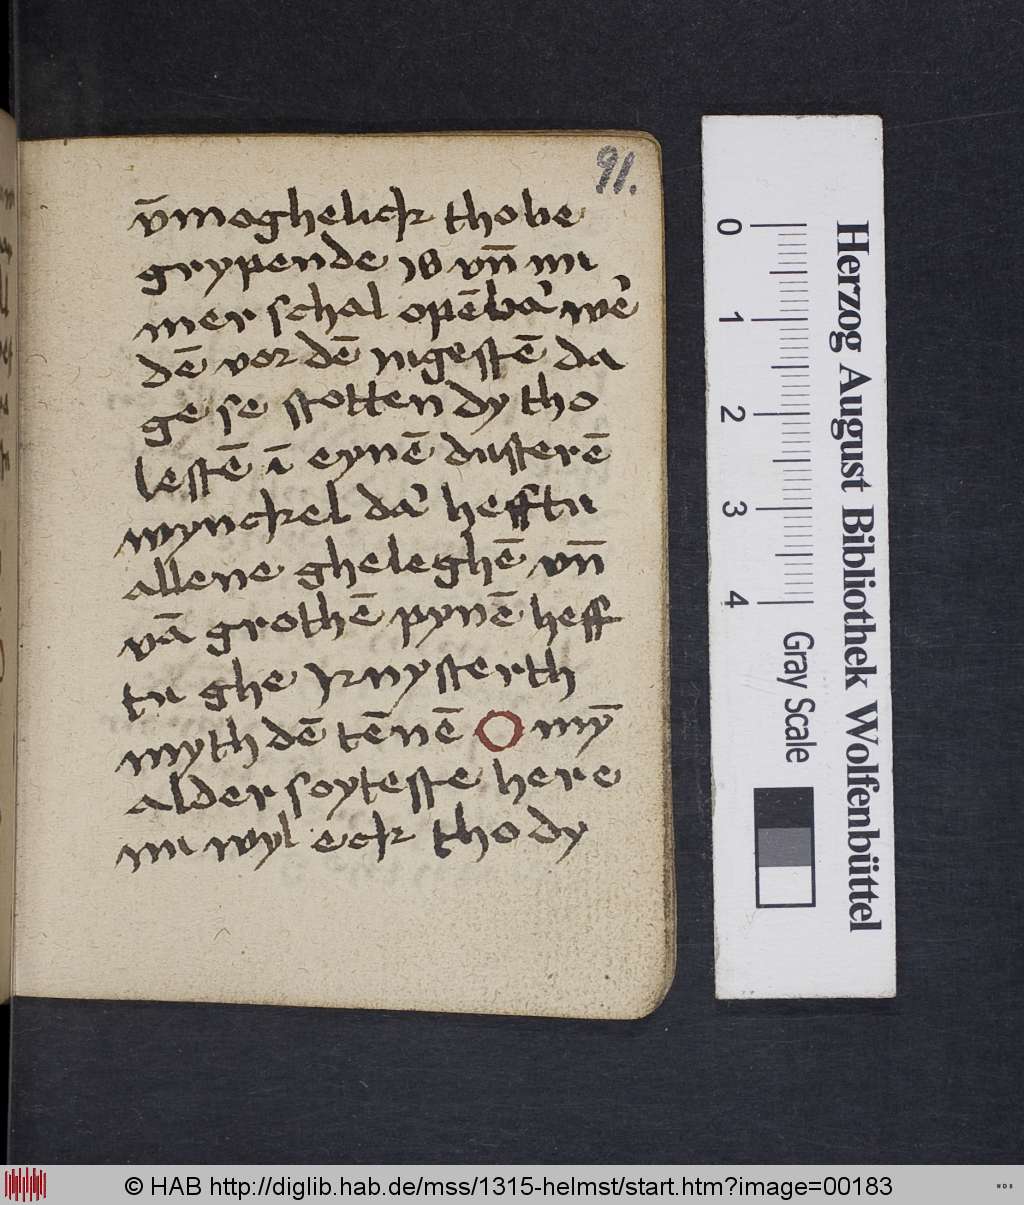 91.
v̄moghelick tho be
grypende is vn̄ nu
mer schal opēba' we'
dē vor dē Jugestē da
ge se stotten dy tho
lestē ī eynē dusterē
wynckel da' hefftu
allene gheleghē vn̄
vā grothē pynē heff
tu ghe knysterth
myth dē tēnē O my̅
alder soyteste here
nu wyl eck tho dy
Herzog August Bibliothek Wolfenbüttel
0 1 2 3 4
Gray Scale
© HAB http://diglib.hab.de/mss/1315-helmst/start.htm?image=00183